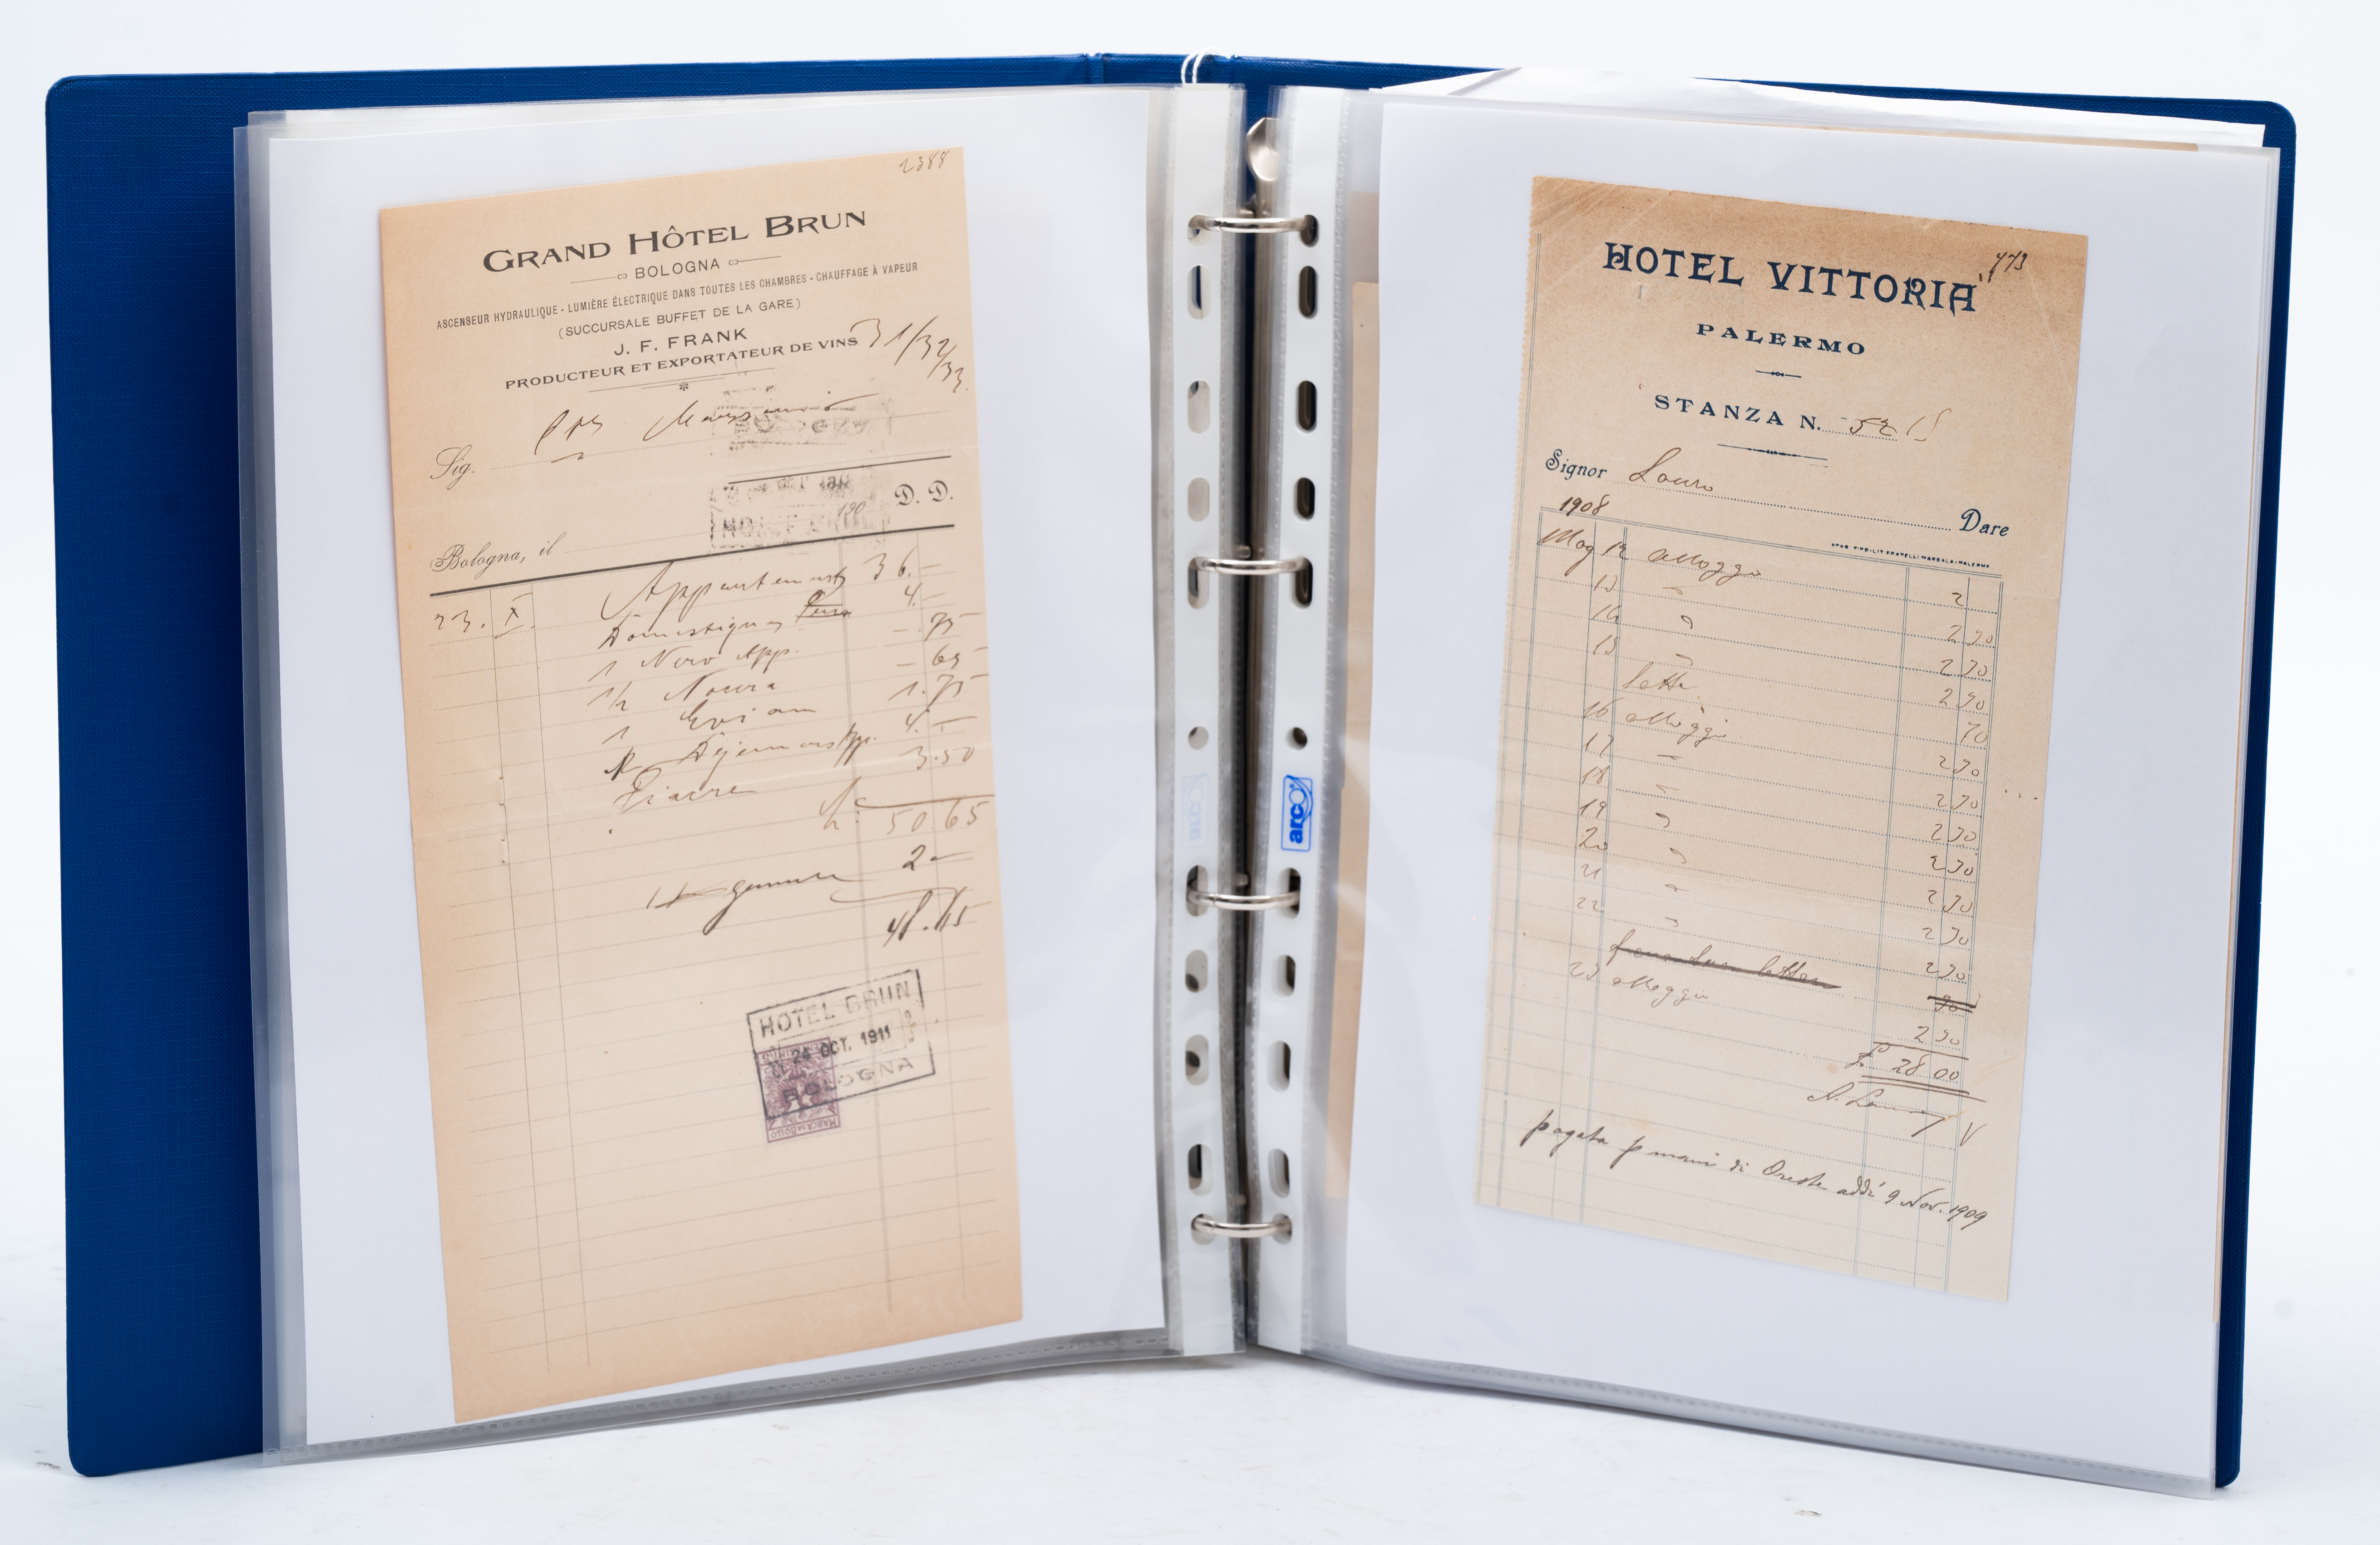 2388
GRAND HÔTEL BRUN
BOLOGNA
ASCENSEUR HYDRAULIQUE - LUMIÈRE ÉLECTRIQUE DANS TOUTES LES CHAMBRES - CHAUFFAGE À VAPEUR
(SUCCURSALE BUFFET DE LA GARE)
J. F. FRANK
PRODUCTEUR ET EXPORTATEUR DE VINS
31/32/33
Sig.
190 D. D.
HOTEL BRUN
Bologna, il
23. X. Appartements 36.-
Domestiques 4.-
1 App. -.75
1/2 Nocera -.65
1 Evian 1.75
Déjeuners App. 4.-
Fiacre 3.50
50 65
2-
48.65
HOTEL BRUN
24 OCT. 1911
BOLOGNA
MARCA DA BOLLO
HOTEL VITTORIA
473
PALERMO
STANZA N. 52
Signor Lauro
1908
Dare
Mag 12 alloggio 2
13 " 2 50
14 " 2 50
15 " 2 50
70
16 alloggio 2 50
17 " 2 50
18 " 2 50
19 " 2 50
20 " 2 50
21 " 2 50
22 " 2 50
23 alloggio 2 50
£ 28 00
pagata p mani di Oreste addì 9 Nov. 1909
arco